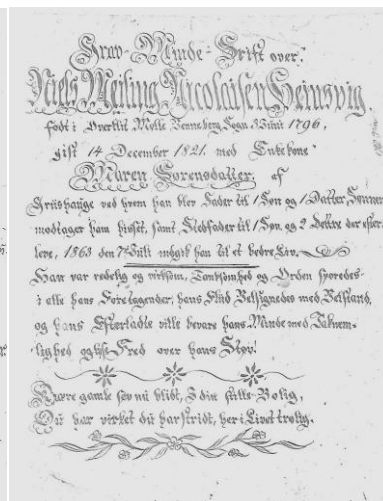 Grav-Minde-Skrift over:
Niels Meiling Nicolaisen
født i Mølle Sogn 3 Juni 1796,
gift 14 December 1821. med Enkekone
Maren Sørensdatter, af
ved hvem han blev Fader til 1 Søn og 1 Datter, Sønnen
modtager ham huset, samt Stedfader til 1 Søn og 2 der efter
leve, 1863 den 7 Juli indgik han til et bedre Liv.
Han var redelig og virksom, Tænksomhed og Orden sporedes
i alle hans Foretagender, hans Flid Velsignedes med Velstand,
og hans Efterladte ville bevare hans Minde med Taknem-
lighed Fred over hans Støv!
Kjære gamle sov nu blidt, I din stille Bolig,
Du har virket du har stridt, her i Livet trolig.